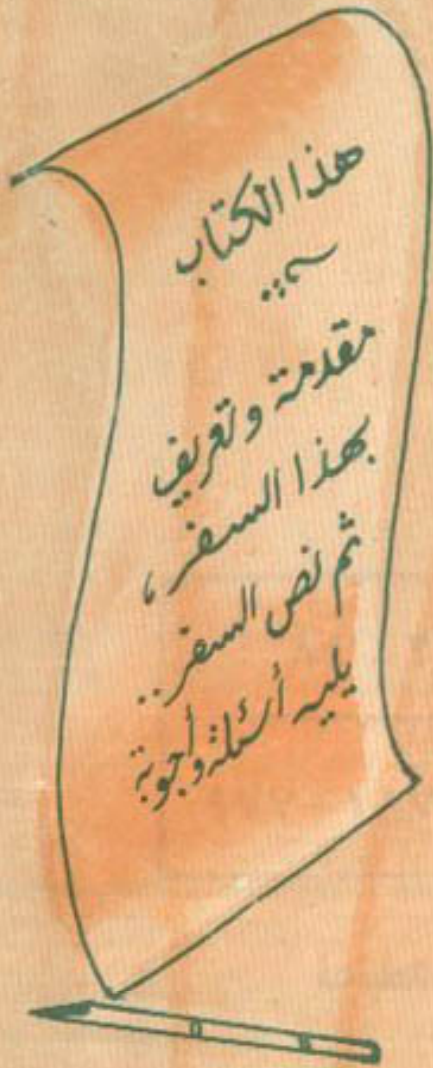 هذا الكتاب
..
مقدمة وتعريف
بهذا السفر،
ثم نص السفر..
يليه أسئلة وأجوبة